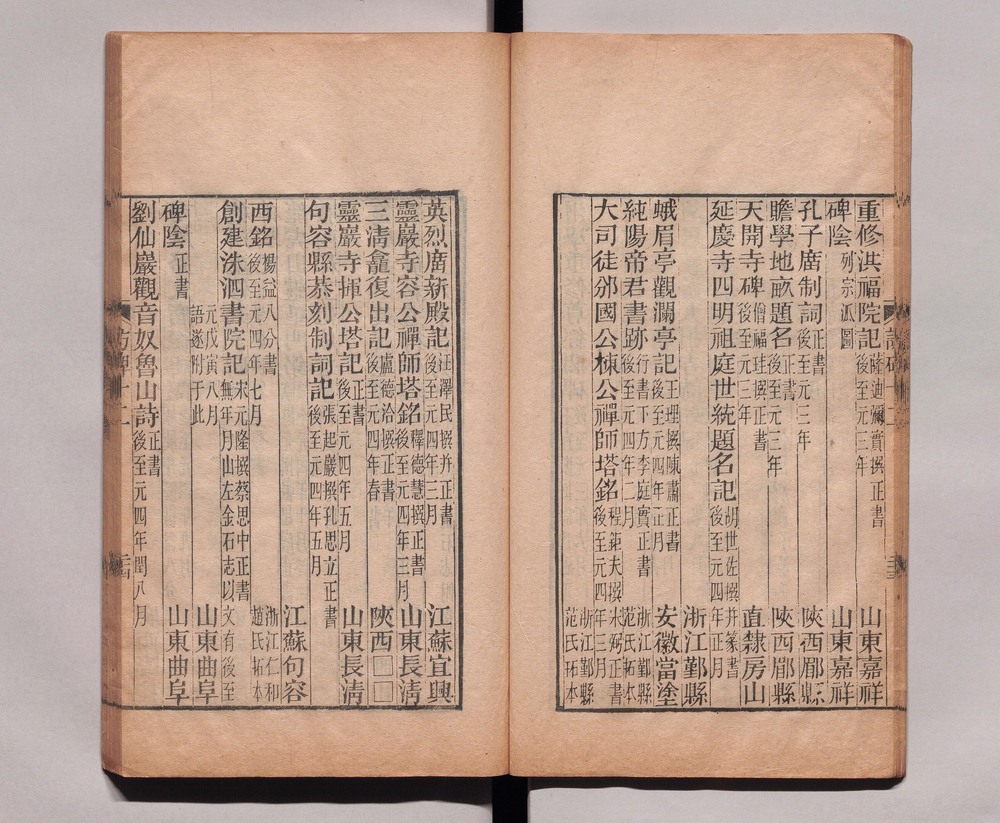 重修洪福院記 薩迪彌實撰正書 後至元三年 山東嘉祥
碑陰 列宗派圖 山東嘉祥
孔子廣制詞 正書 後至元三年 陝西郿縣
瞻學地畝題名 正書 後至元三年 陝西郿縣
天開寺碑 僧福珪撰正書 後至元三年 直隸房山
延慶寺四明祖庭世統題名記 胡世佐撰并篆書 後至元四年正月
浙江鄞縣
蛾眉亭觀瀾亭記 王理撰陳肅正書 後至元四年正月 安徽當塗
純陽帝君書跡 行書下方李庭實正書 後至元四年二月 浙江鄞縣范氏拓本
大司徒邠國公棟公禪師塔銘 程鉅夫撰 正書 後至元四年三月 浙江鄞縣范氏拓本
英烈廣新殿記 汪澤民撰并正書 後至元四年三月 江蘇宜興
靈巖寺容公禪師塔銘 釋德慧撰正書 後至元四年三月 山東長清
三清龕復出記 盧德洽撰正書 後至元四年春 陝西□□
靈巖寺揮公塔記 正書 後至元四年五月 山東長清
句容縣恭刻制詞記 張起巖撰孔思立正書 後至元四年五月
江蘇句容
西銘 楊益八分書 後至元四年七月 浙江仁和趙氏拓本
創建洙泗書院記 宋元隆撰蔡思中正書 無年月山左金石志以文有後至
元戊寅八月語遂附于此 山東曲阜
碑陰 正書 山東曲阜
劉仙巖觀音奴魯山詩 正書 後至元四年閏八月